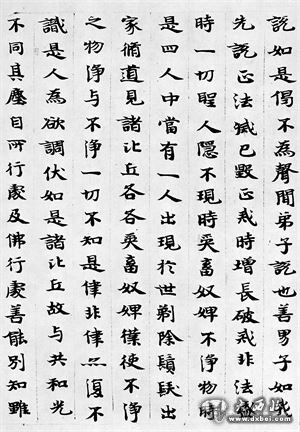 說如是偈不為聲聞弟子說也善男子如我
先說正法滅已毀正戒時增長破戒非法盛
時一切聖人隱不現時受畜奴婢不淨物時
是四人中當有一人出現於世剃除鬚髮出
家脩道見諸比丘各各受畜奴婢僕使不淨
之物淨与不淨一切不知是律非律亦復不
識是人為欲調伏如是諸比丘故与共和光
不同其塵自所行處及佛行處善能別知雖
www.dxbei.com